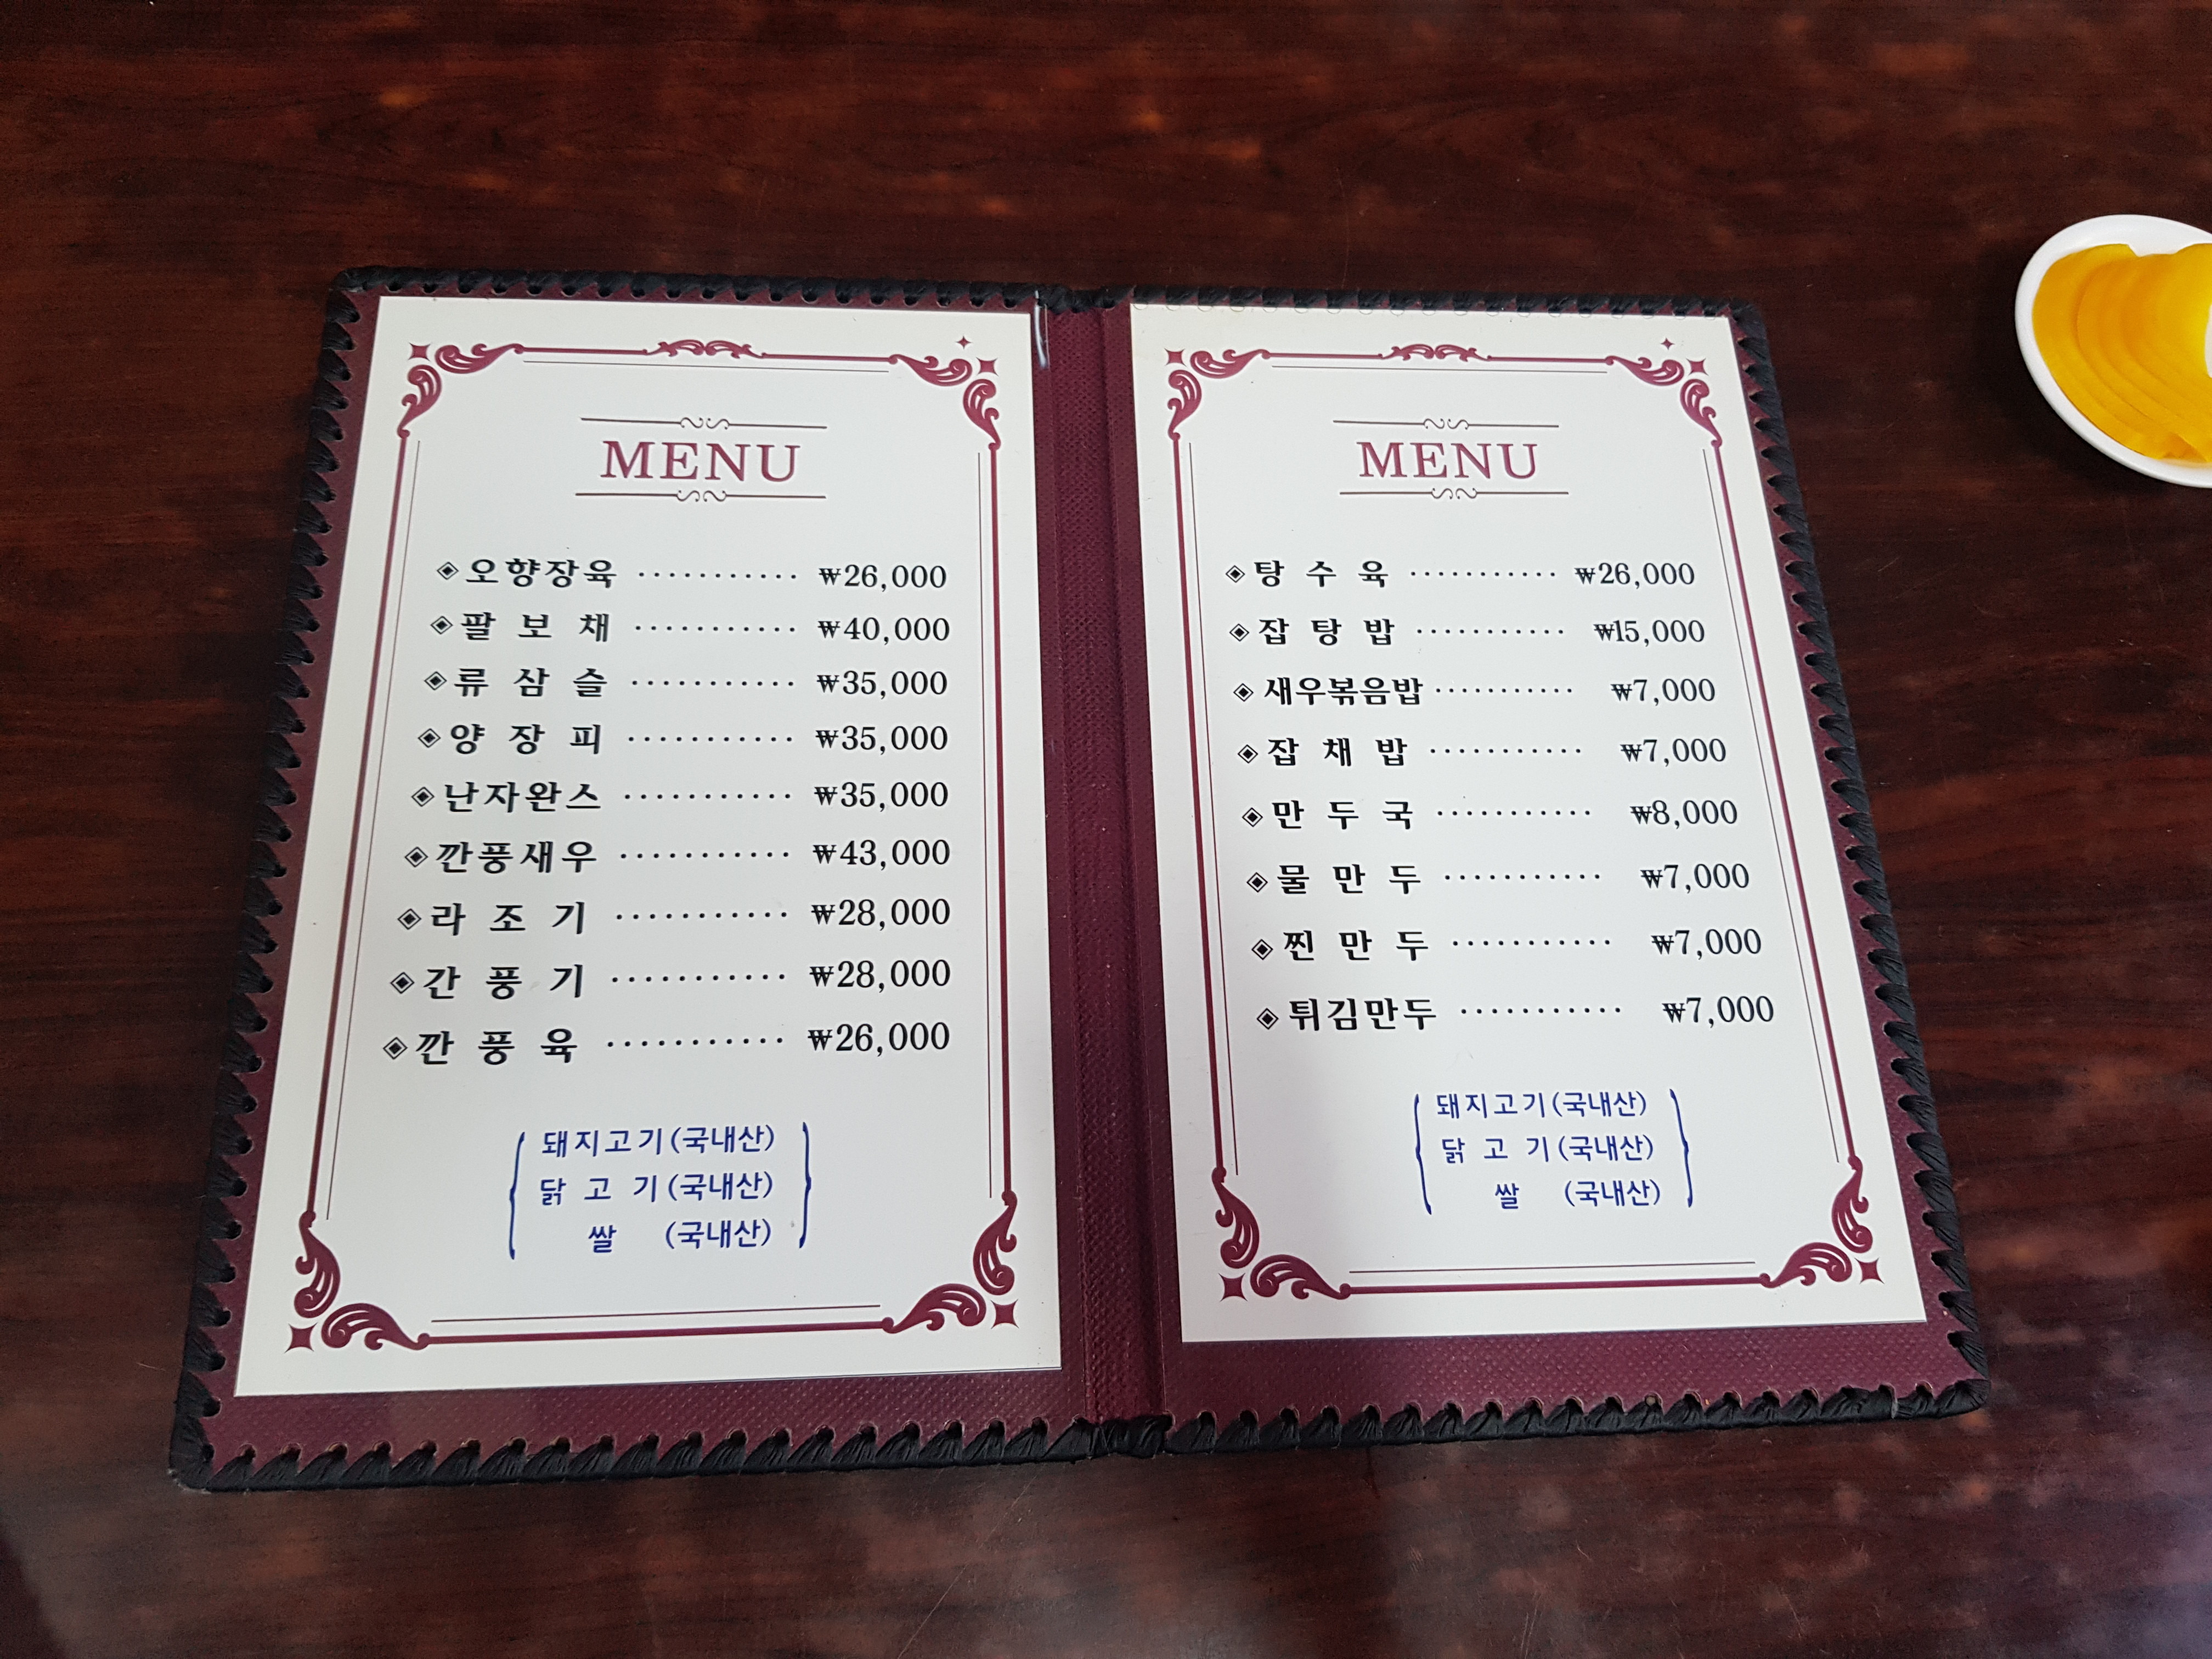 MENU
◈오향장육 ··········· ₩26,000
◈팔 보 채 ··········· ₩40,000
◈류 삼 슬 ··········· ₩35,000
◈양 장 피 ··········· ₩35,000
◈난자완스 ··········· ₩35,000
◈깐풍새우 ··········· ₩43,000
◈라 조 기 ··········· ₩28,000
◈간 풍 기 ··········· ₩28,000
◈깐 풍 육 ··········· ₩26,000
돼지고기(국내산)
닭 고 기(국내산)
쌀 (국내산)
MENU
◈탕 수 육 ··········· ₩26,000
◈잡 탕 밥 ··········· ₩15,000
◈새우볶음밥 ··········· ₩7,000
◈잡 채 밥 ··········· ₩7,000
◈만 두 국 ··········· ₩8,000
◈물 만 두 ··········· ₩7,000
◈찐 만 두 ··········· ₩7,000
◈튀김만두 ··········· ₩7,000
돼지고기(국내산)
닭 고 기(국내산)
쌀 (국내산)